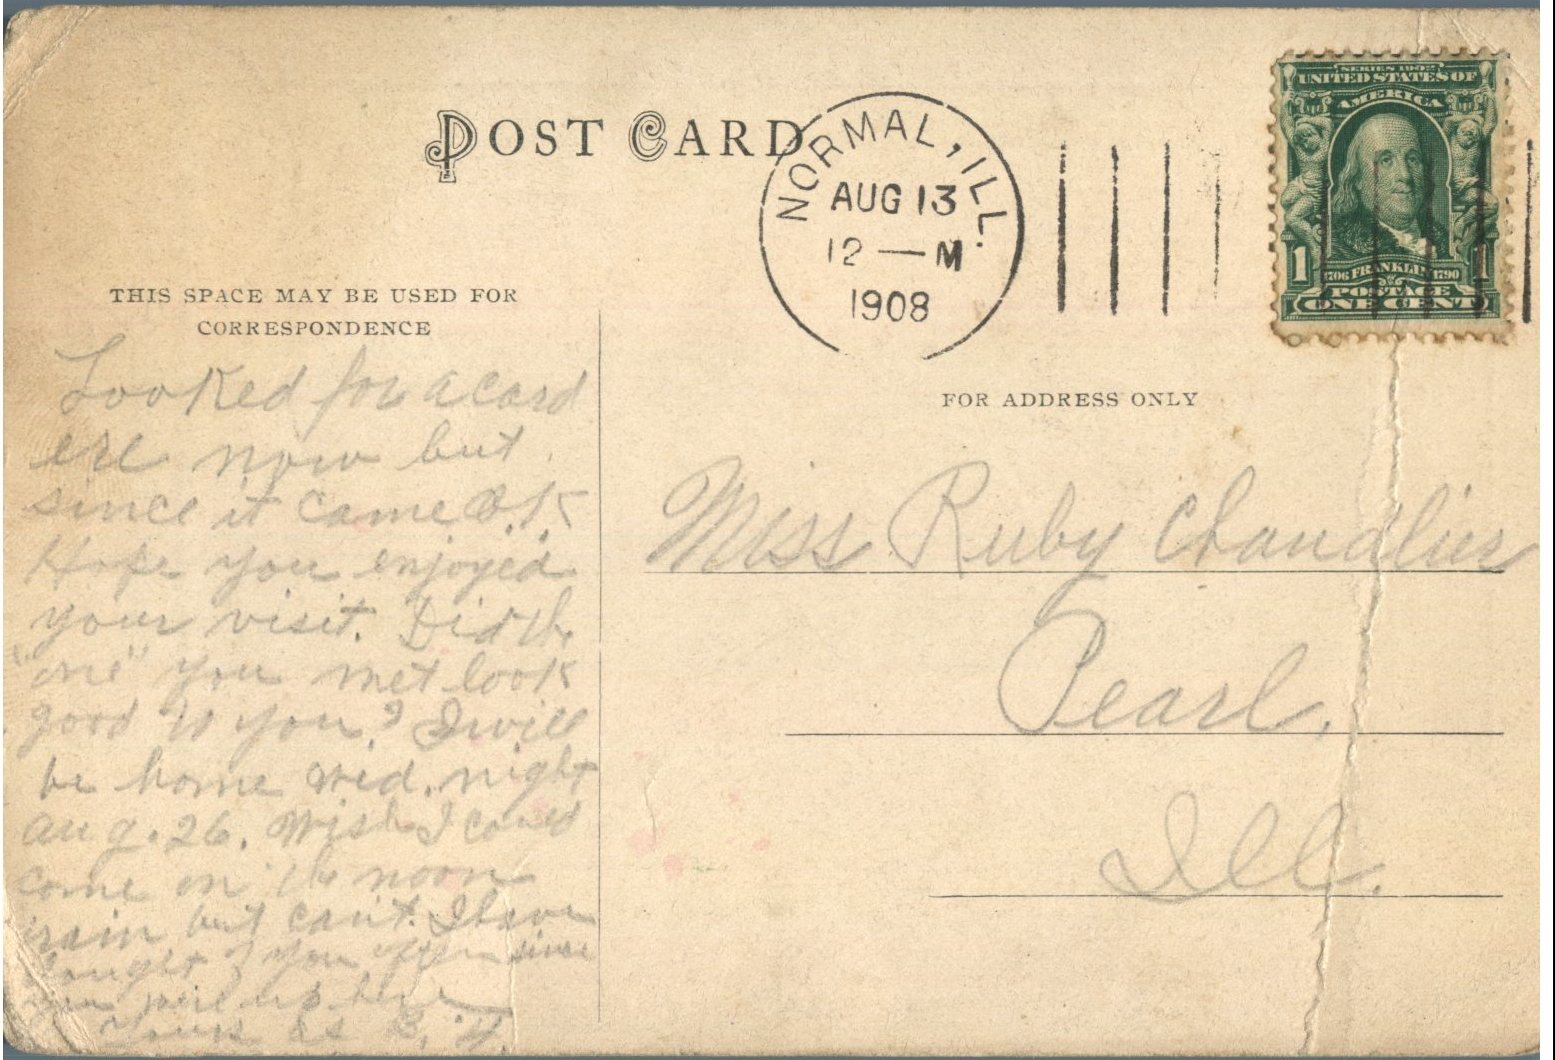 POST CARD
NORMAL, ILL.
AUG 13
12 — M
1908
SERIES 1902
UNITED STATES OF
AMERICA
1 1
1706 FRANKLIN 1790
POSTAGE
ONE CENT
THIS SPACE MAY BE USED FOR
CORRESPONDENCE
Looked for a card
ere now but
since it came O.K.
Hope you enjoyed
your visit. Did the
"one" you met look
good to you? I will
be home Wed. night
Aug. 26. Wish I could
come on the noon
train but can't. I have
of you often since
here
Yours
FOR ADDRESS ONLY
Miss Ruby Chandlier
Pearl.
Ill.